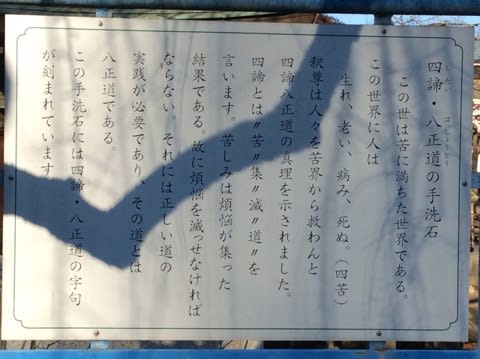 四諦・八正道の手洗石
たい
はしょうどう
この世は苦に満ちた世界である。
この世界に人は
生れ、老い、病み、死ぬ。(四苦)
釈尊は人々を苦界から救わんと
四諦八正道の真理を示されました。
四諦とは〃苦〃集〃滅〃道〃を
言います。苦しみは煩悩が集った
結果である。故に煩悩を滅っせなければ
ならない。それには正しい道の
実践が必要であり、その道とは
八正道である。
この手洗石には四諦・八正道の字句
が刻まれています。